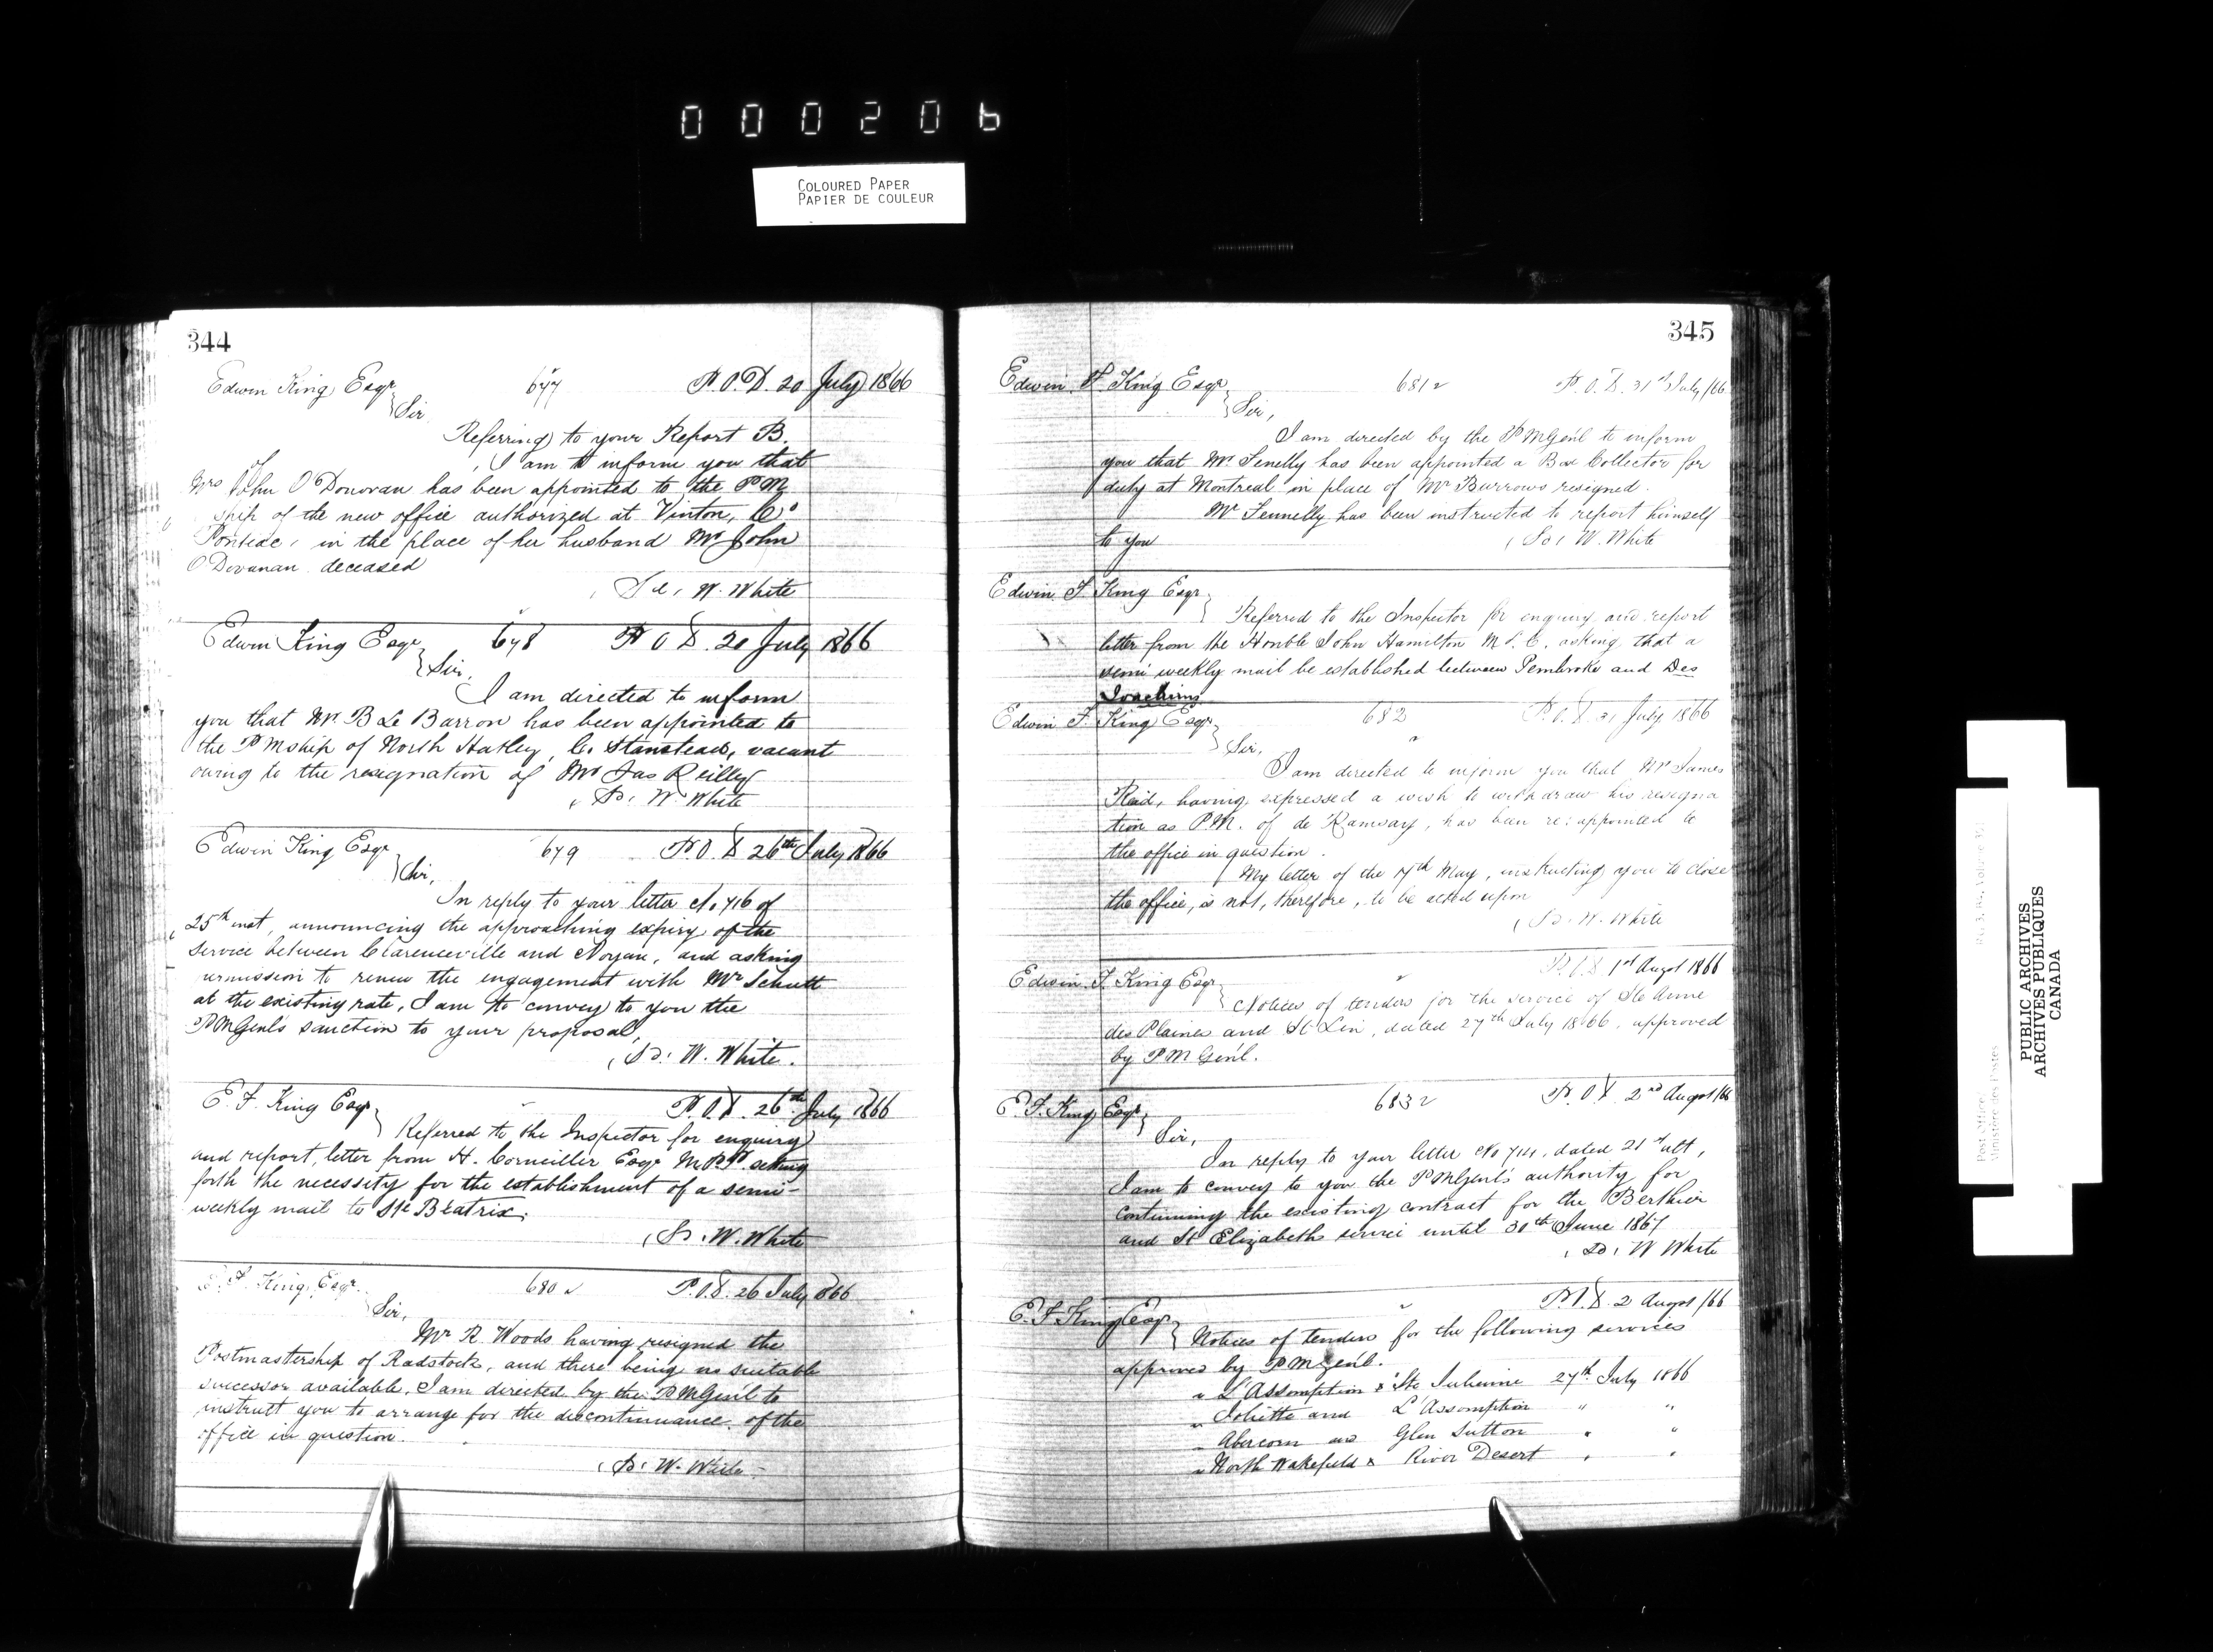 000206
COLOURED PAPER
PAPIER DE COULEUR
344
Edwin King Esqr 677 P.O.D. 20 July 1866
Sir
Referring to your Report B.
of
I am to inform you that
Mrs John O'Donovan has been appointed to the PM
ship of the new office authorized at Vinton, Co
Pontiac, in the place of her husband Mr John
O'Donovan deceased
(Sd, W. White
Edwin King Esqr 678 P O D. 20 July 1866
Sir,
I am directed to inform
you that Mr B Le Barron has been appointed to
the PMship of North Hatley, Co. Stanstead, vacant
owing to the resignation of Mr Jas Reilly
(Sd, W. White
Edwin King Esqr 679 P.O.D 26th July 1866
Sir,
In reply to your letter No 716 of
25th inst, announcing the approaching expiry of the
service between Clarenceville and Noyan, and asking
permission to renew the engagement with Mr Schutt
at the existing rate, I am to convey to you the
PMGenl's sanction to your proposal,
(Sd: W. White.
E. F. King Esqr P.O.D. 26th July 1866
Referred to the Inspector for enquiry
and report, letter from H. Corneillier Esqr M.P.P. setting
forth the necessity for the establishment of a semi-
weekly mail to Ste Béatrix.
(Sd. W. White
E. F. King Esqr. 680 P.O.D. 26 July 1866
Sir,
Mr R. Woods having resigned the
Postmastership of Radstock, and there being no suitable
successor available, I am directed by the PMGen'l to
instruct you to arrange for the discontinuance of the
office in question.
(Sd: W. White
345
Edwin F. King Esqr 681 P.O.D. 31st July /66
Sir,
I am directed by the PMGen'l to inform
you that Mr. Fenelly has been appointed a Box Collector for
duty at Montreal in place of Mr Burrows resigned.
Mr Fennelly has been instructed to report himself
to you
(Sd: W. White
Edwin F. King Esqr
Referred to the Inspector for enquiry and report
letter from the Honble John Hamilton M.L.C. asking that a
semi weekly mail be established between Pembroke and Des
Joachims
Edwin F. King Esqr 682 P.O.D. 31 July 1866
Sir,
I am directed to inform you that Mr James
Reid, having expressed a wish to withdraw his resigna
tion as P.M. of de Ramsay, has been re:appointed to
the office in question.
My letter of the 17th May, instructing you to close
the office, is not, therefore, to be acted upon
(Sd. W. White
P.O.D. 1st Augst 1866
Edwin F. King Esqr
Notices of tenders for the service of Ste Anne
des Plaines and St Lin, dated 27th July 1866, approved
by PM Gen'l.
E. F. King Esqr 683 P.O.D. 2nd Augst /66
Sir,
In reply to your letter No 714, dated 21st ult,
I am to convey to you the PMGenl's authority for
continuing the existing contract for the Berthier
and St Elizabeth service until 30th June 1867
(Sd: W White
P.O.D. 2 Augst /66
E. F. King Esqr
Notices of tenders for the following services
approved by PMGen'l.
" L'Assomption & Ste Julienne 27th July 1866
" Joliette and L'Assomption " "
" Abercorn and Glen Sutton " "
" North Wakefield & River Desert " "
PUBLIC ARCHIVES
ARCHIVES PUBLIQUES
CANADA
Post Office
Ministère des Postes